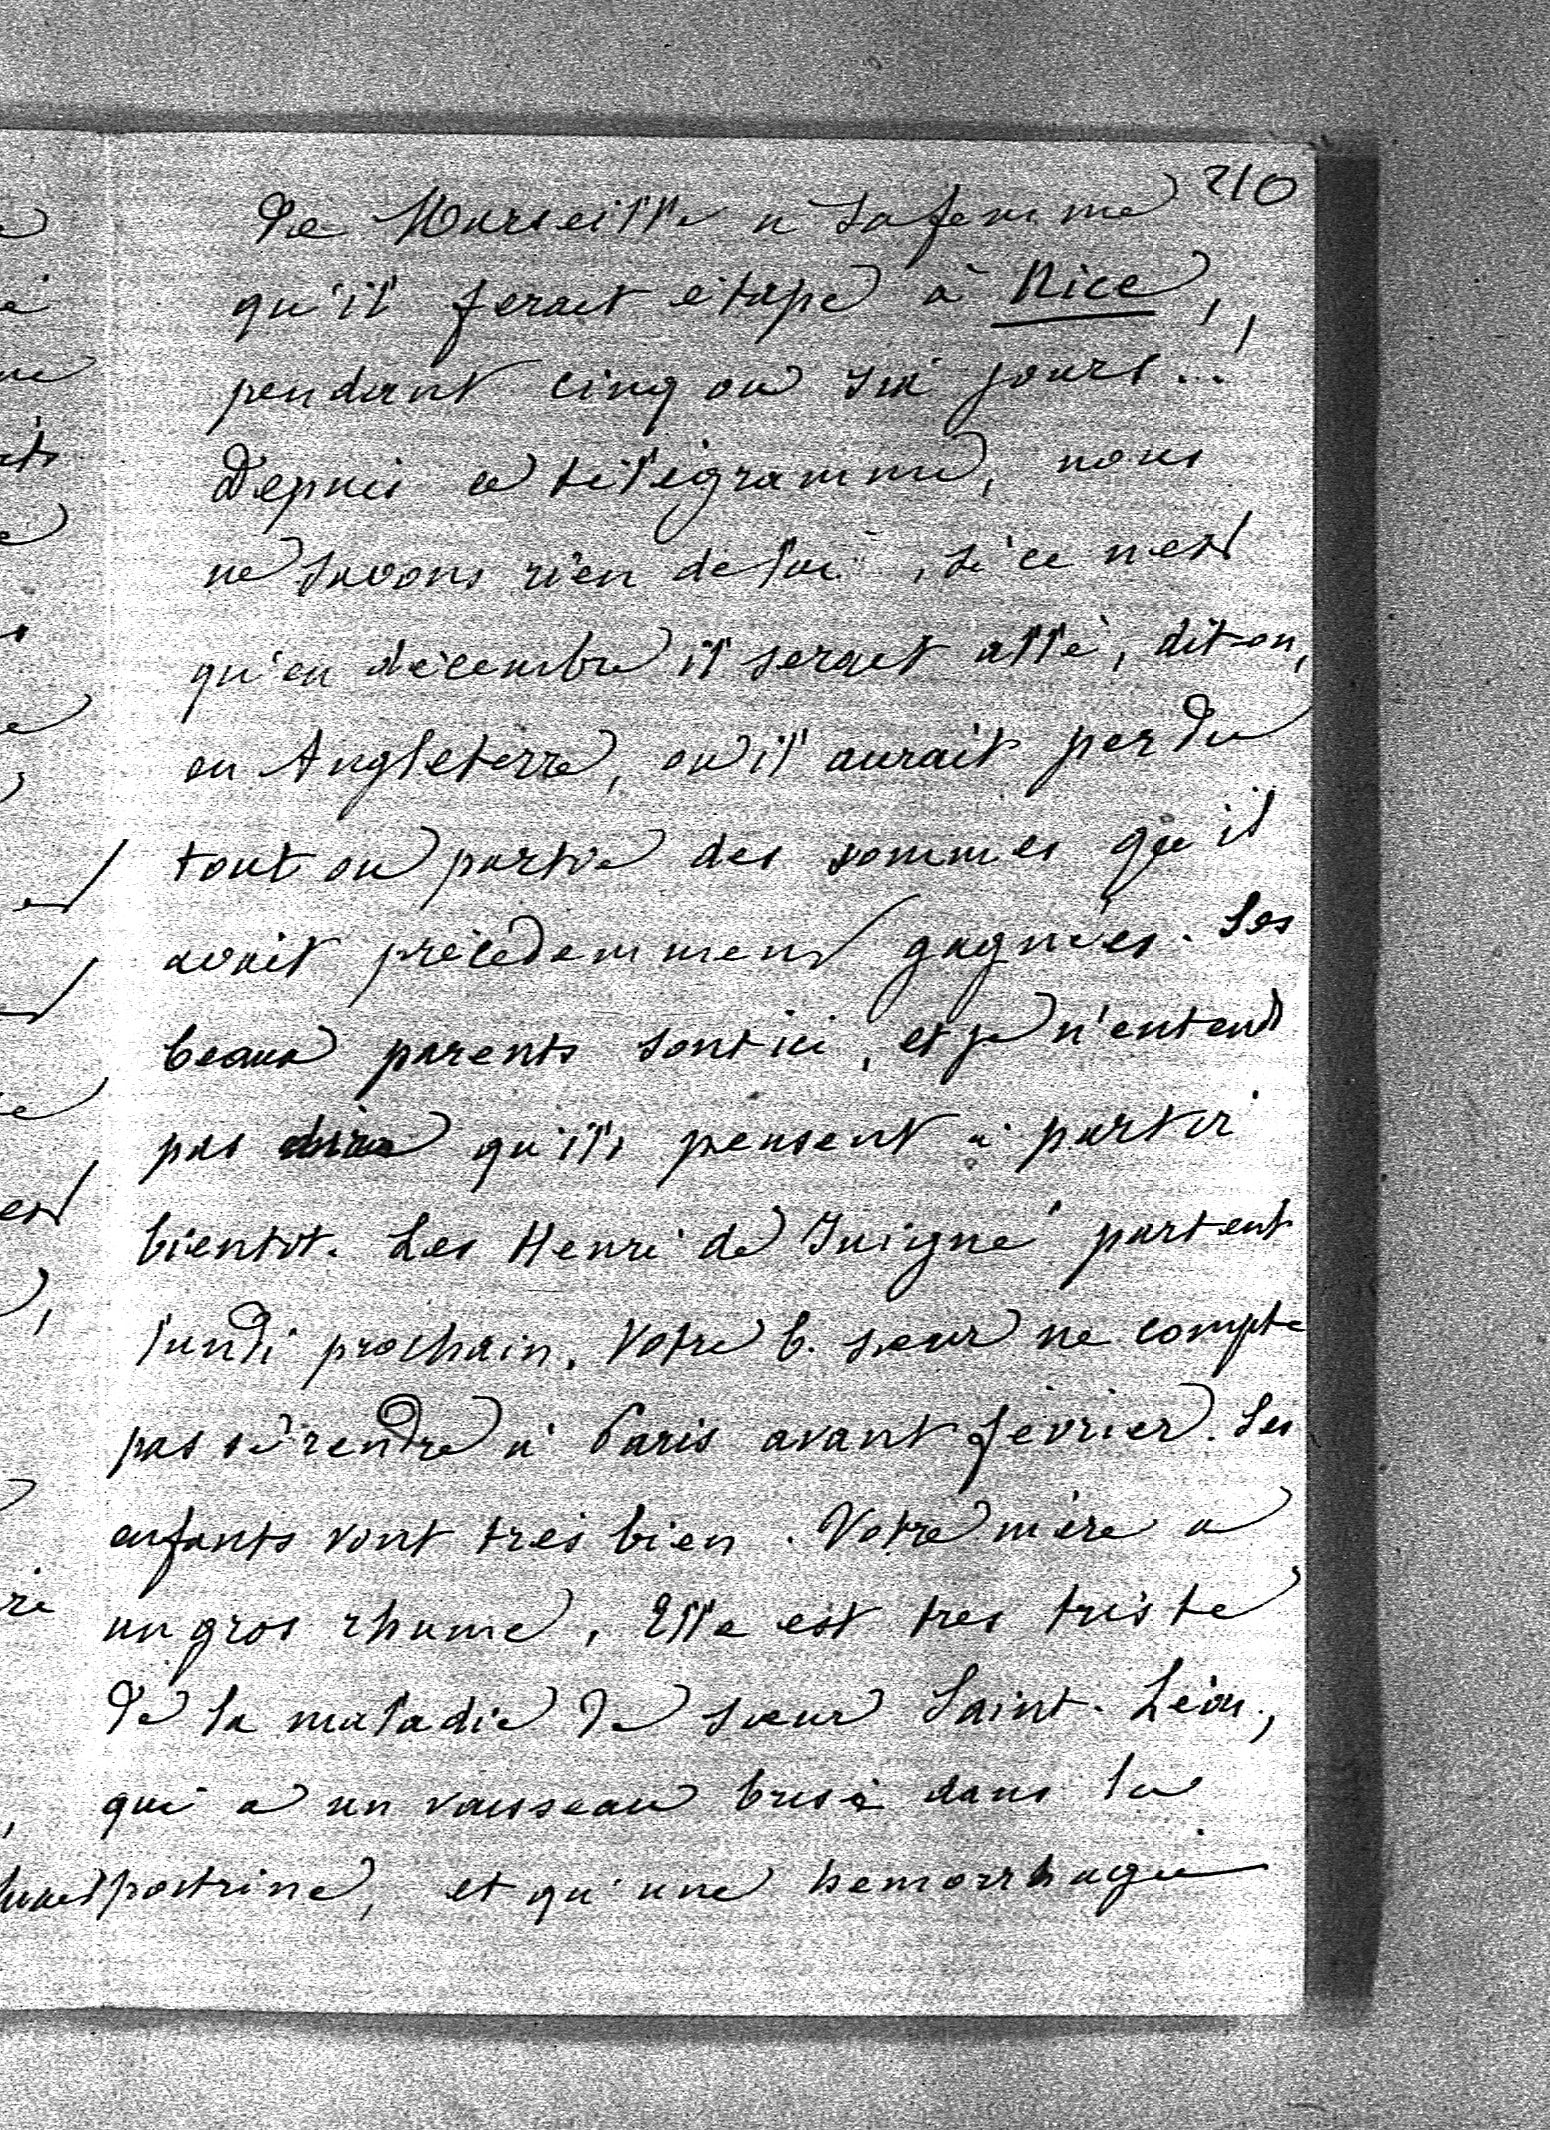 210
de Marseille à sa femme
qu'il ferait étape à Nice,
pendant cinq ou six jours...
Depuis ce télégramme, nous
ne savons rien de lui, si ce n'est
qu'en décembre il serait allé, dit-on,
en Angleterre, où il aurait perdu
tout ou partie des sommes qu'il
avait précédemment gagnées. Ses
beaux parents sont ici, et je n'entends
pas dire qu'ils pensent à partir
bientot. Les Henri de Juigné partent
lundi prochain. Votre b. sœur ne compte
pas se rendre à Paris avant février. Ses
enfants vont très bien. Votre mère a
un gros rhume. Elle est très triste
de la maladie de sœur Saint-Léon,
qui a un vaisseau brisé dans la
poitrine, et qu'une hémorrhagie